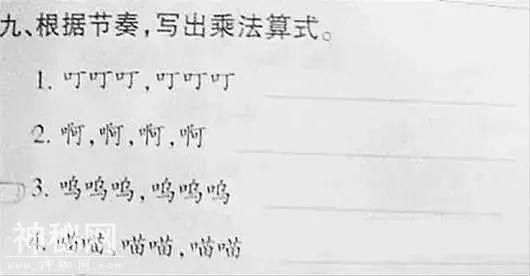 九、根据节奏,写出乘法算式。
1. 叮叮叮,叮叮叮
2. 啊,啊,啊,啊
3. 呜呜呜,呜呜呜
4. 喵喵,喵喵,喵喵
神秘网